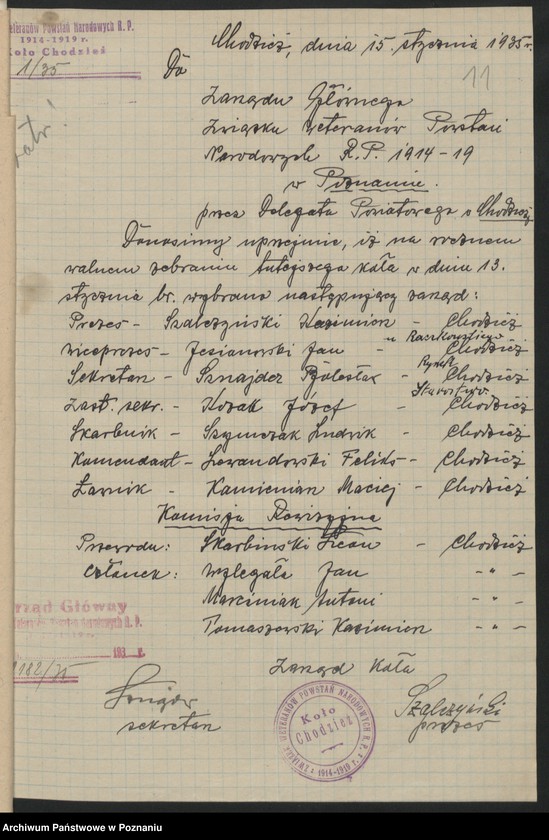 Veteranów Powstań Narodowych R. P.
1914-1919 r.
Koło Chodzież
1/35
Chodzież, dnia 15. stycznia 1935 r.
11
Do
Zarządu Głównego
Związku Weteranów Powstań
Narodowych R.P. 1914-19
w Poznaniu.
przez Delegata Powiatowego w Chodzieży
Donosimy uprzejmie, iż na rocznem
walnem zebraniu tutejszego koła w dniu 13.
stycznia br. wybrano następujący zarząd:
Prezes - Szalczyński Kazimierz - Chodzież
wiceprezes - Jesianowski Jan - u Raczkowskiego Chodzież
Sekretarz - Sznajder Bolesław - Rynek Chodzież
Zast. sekr. - Kozak Józef - Starostwo Chodzież
Skarbnik - Szymczak Ludwik - Chodzież
Komendant - Lewandowski Feliks - Chodzież
Ławnik - Kamieniarz Maciej - Chodzież
Komisja Rewizyjna
Przewodn: Skarbiński - Chodzież
Członek: Wzlegała Jan - " -
Marciniak Antoni - " -
Tomaszewski Kazimierz - " -
Zarząd Główny
Weteranów Powstań Narodowych R. P.
193 r.
182/35
Zarząd Koła
sekretarz
Szalczyński
prezes
ZWIĄZEK WETERANÓW POWSTAŃ NARODOWYCH R. P. 1914-1919 R.
Koło
Chodzież
Archiwum Państwowe w Poznaniu